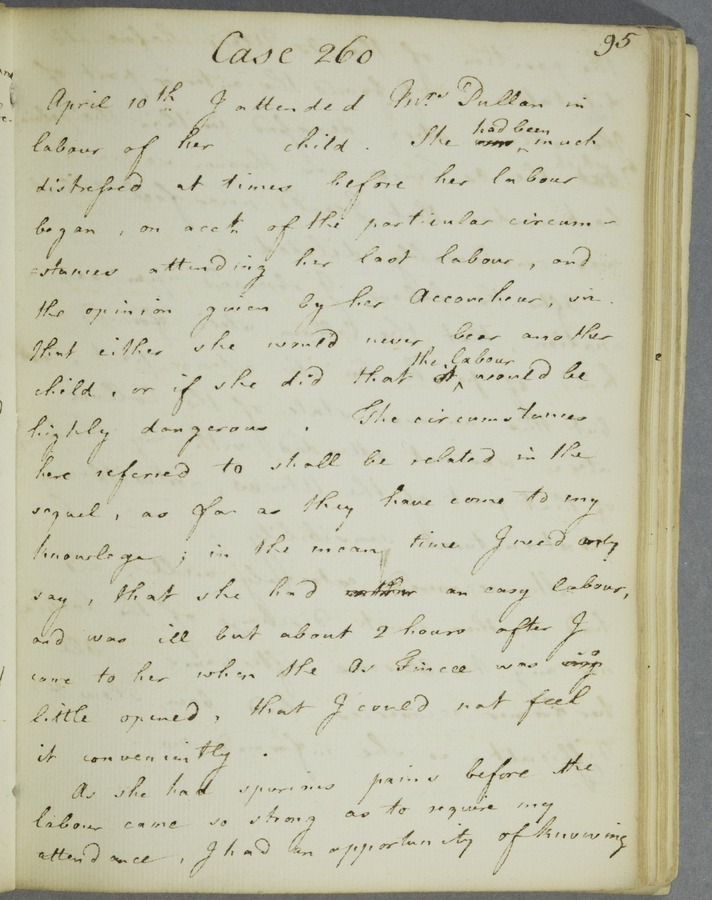 95
Case 260
April 10th I attended Mrs Dullan in
labour of her child. She had been much
distressed at times before her labour
began, on acct. of the particular circum-
=stances attending her last labour, and
the opinion given by her Accoucheur, viz.
that either she would never bear another
child, or if she did that the labour would be
highly dangerous. The circumstances
here referred to shall be related in the
sequel, as far as they have come to my
knowlege; in the mean time I need only
say, that she had an easy labour,
and was ill but about 2 hours after I
came to her when the Os Tincae was so
little opened, that I could not feel
it conveniently.
As she had spurious pains before the
labour came so strong as to require my
attendance, I had an opportunity of knowing